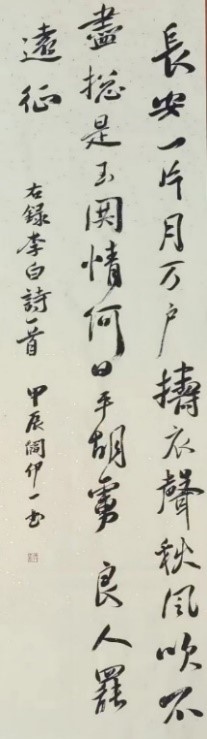 長安一片月万户擣衣聲秋風吹不
盡揔是玉関情何日平胡虜良人罷
遠征
右録李白詩一首
甲辰侗伊一書